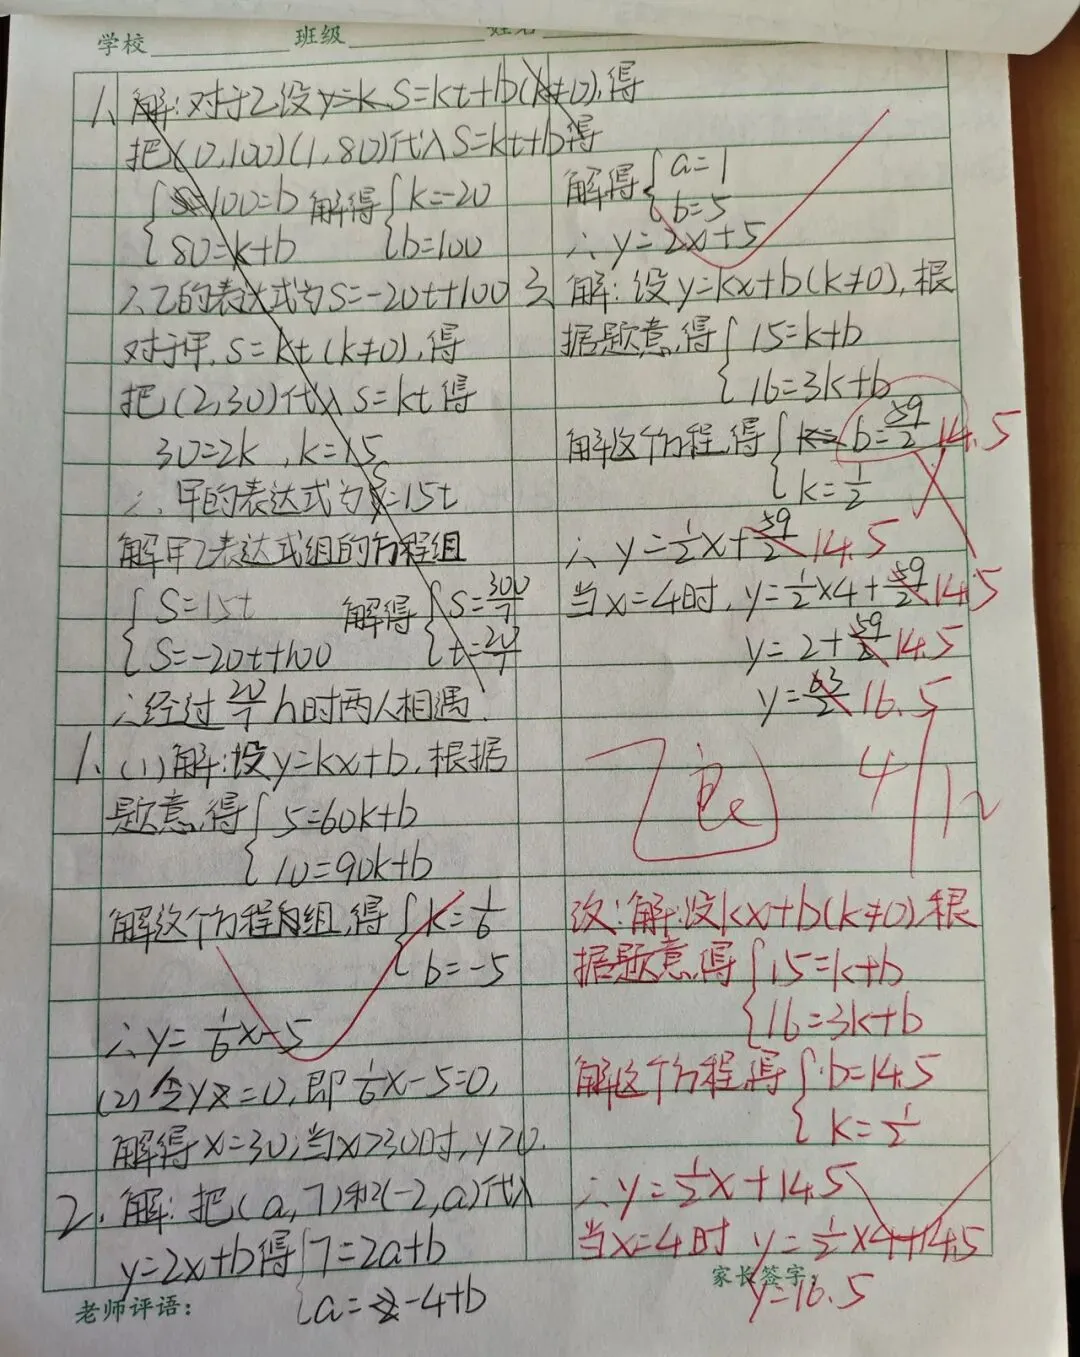 学校 班级 姓名
1、解:对于乙设y=k S=kt+b(k≠0),得
把(0,100)(1,80)代入S=kt+b得
{100=b 解得{k=-20
{80=k+b {b=100
∴乙的表达式为S=-20t+100
对于甲,S=kt(k≠0),得
把(2,30)代入S=kt得
30=2k,k=15
∴甲的表达式为S=15t
解甲乙表达式组的方程组
{S=15t 解得{S=300/7
{S=-20t+100 {t=20/7
∴经过20/7h时两人相遇.
1、(1)解:设y=kx+b,根据
题意,得{5=60k+b
{10=90k+b
解这个方程组,得{k=1/6
{b=-5
∴y=1/6x-5
(2)令y=0,即1/6x-5=0,
解得x=30,当x>30时,y>0.
2.解:把(a,7)和(-2,a)代入
y=2x+b得{7=2a+b
{a=-4+b
解得{a=1
{b=5
∴y=2x+5
3、解:设y=kx+b(k≠0),根
据题意,得{15=k+b
{16=3k+b
解这个方程,得{k= b=59/2 14.5
{k=1/2
∴y=1/2x+59/2 14.5
当x=4时,y=1/2×4+59/2 14.5
y=2+59/2 14.5
y=63/2 16.5
4/12
改:解:设kx+b(k≠0),根
据题意,得{15=k+b
{16=3k+b
解这个方程,得{b=14.5
{k=1/2
∴y=1/2x+14.5
当x=4时 y=1/2×4+14.5
y=16.5
老师评语: 家长签字: